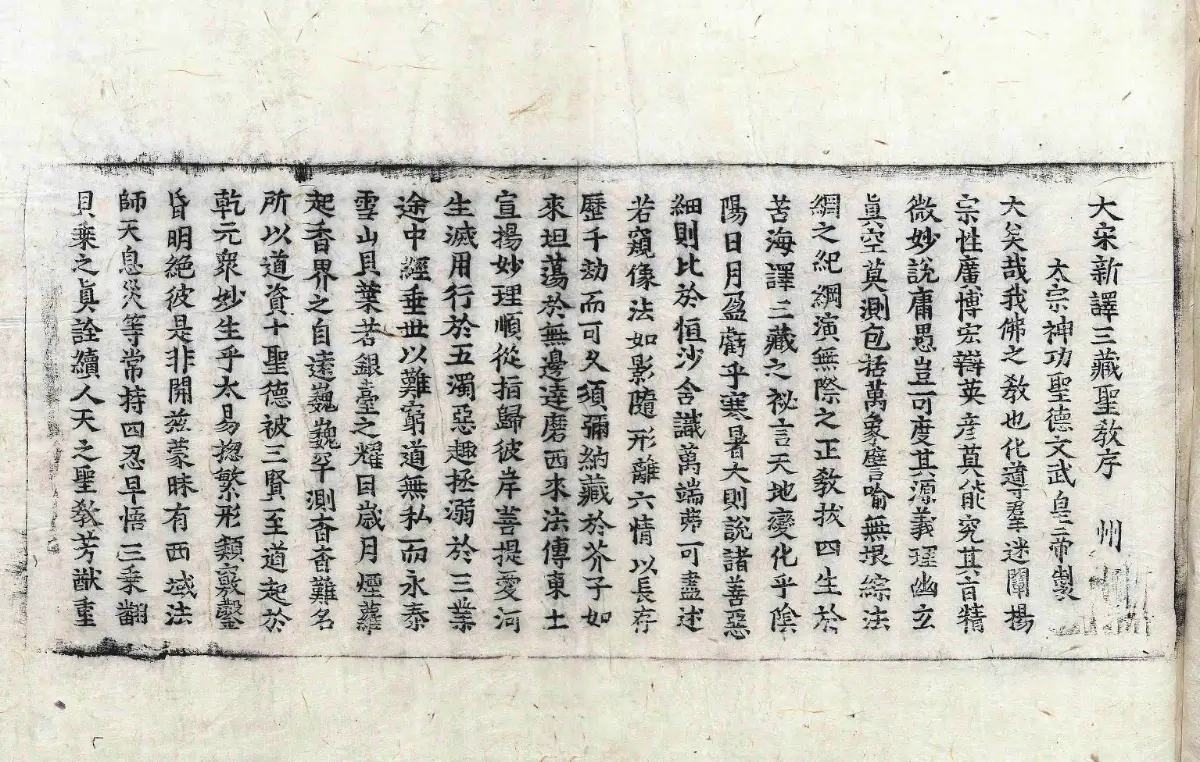 大宋新譯三藏聖教序 州
太宗神功聖德文武皇帝製
大矣哉我佛之教也化導羣迷闡揚
宗性廣博宏辯英彦莫能究其旨精
微妙說庸愚豈可度其源義理幽玄
眞空莫測包括萬象譬喻無垠綜法
綱之紀綱演無際之正教拔四生於
苦海譯三藏之祕言天地變化乎陰
陽日月盈虧乎寒暑大則說諸善惡
細則比於恒沙含識萬端弗可盡述
若窺像法如影隨形離六情以長存
歷千劫而可久須彌納藏於芥子如
來坦蕩於無邊達磨西來法傳東土
宣揚妙理順從指歸彼岸菩提愛河
生滅用行於五濁惡趣拯溺於三業
途中經垂世以難窮道無私而永泰
雪山貝葉若銀臺之耀目歲月煙蘿
起香界之自遠巍巍罕測杳杳難名
所以道資十聖德被三賢至道起於
乾元衆妙生乎太易揔繁形類竅鑿
昏明絕彼是非開茲蒙昧有西域法
師天息災等常持四忍早悟三乘翻
貝葉之眞詮續人天之聖教芳猷重